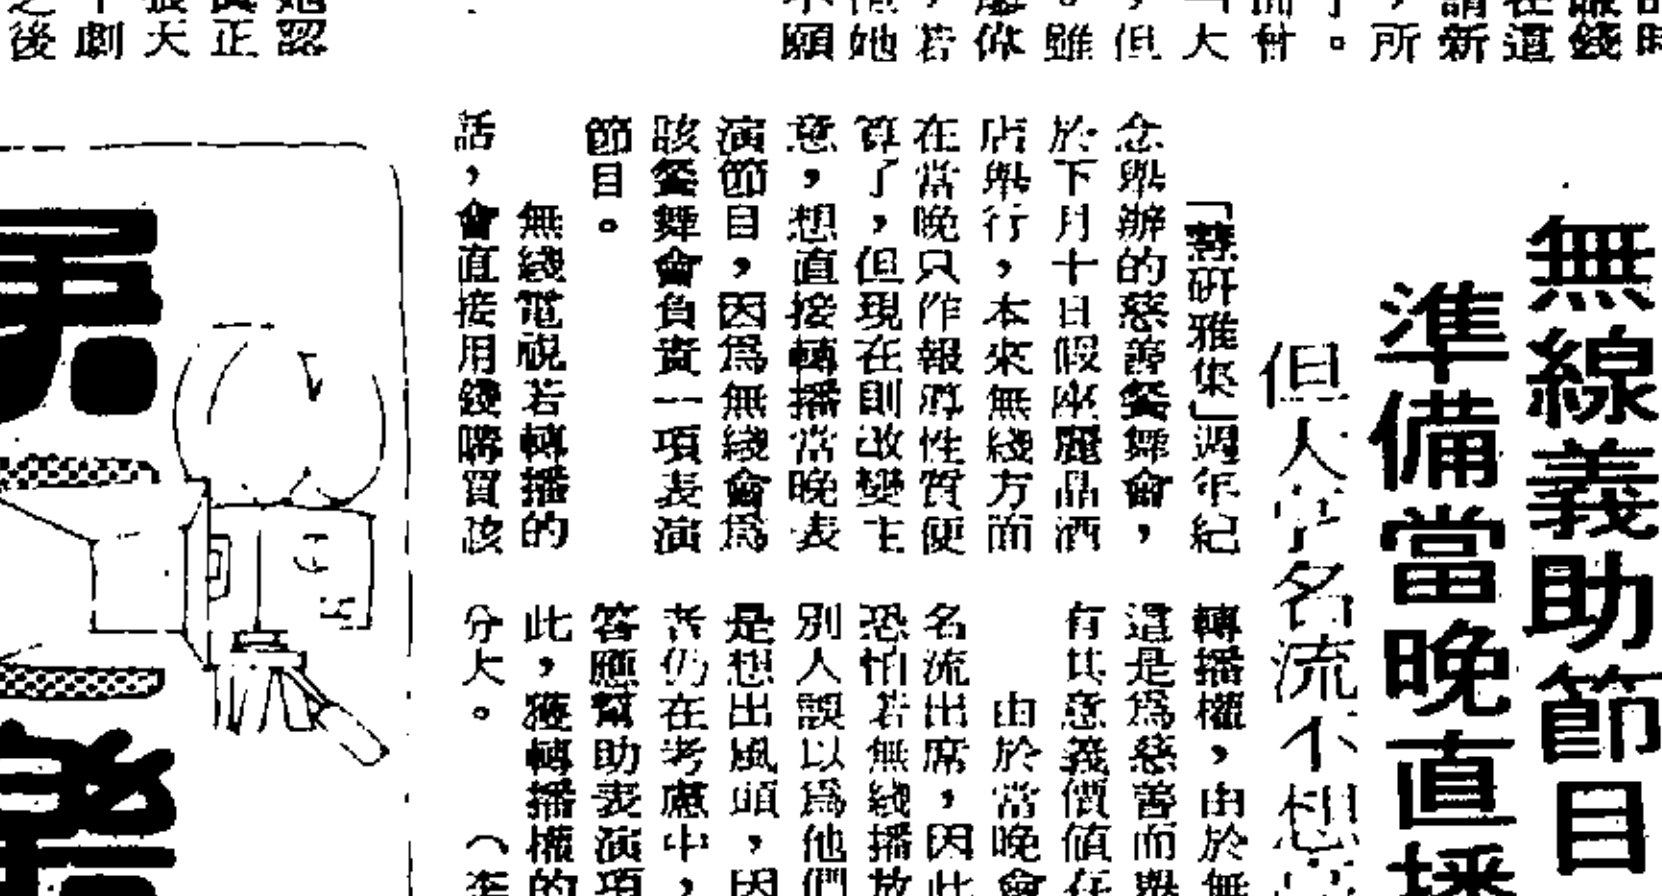 無線義助節目
準備當晚直播
但人名流不想
「慧研雅集」週年紀
念舉辦的慈善餐舞會，
於下月十日假座麗晶酒
店舉行，本來無綫方面
在當晚只作報導性質便
算了，但現在則改變主
意，想直接轉播當晚表
演節目，因爲無綫會爲
該餐舞會負責一項表演
節目。
無綫電視若轉播的
話，會直接用錢購買該
轉播權，由於無
這是爲慈善而舉
有其意義價值在
由於當晚會
名流出席，因此
恐怕若無綫播放
別人誤以爲他們
是想出風頭，因
者仍在考慮中，
答應幫助表演項
此，獲轉播權的
分大。（李
時
錢
在這
請新
，所
了。
而會
大
，但
。雖
廖偉
，若
她
不願
她認
眞正
張天
劇
之後